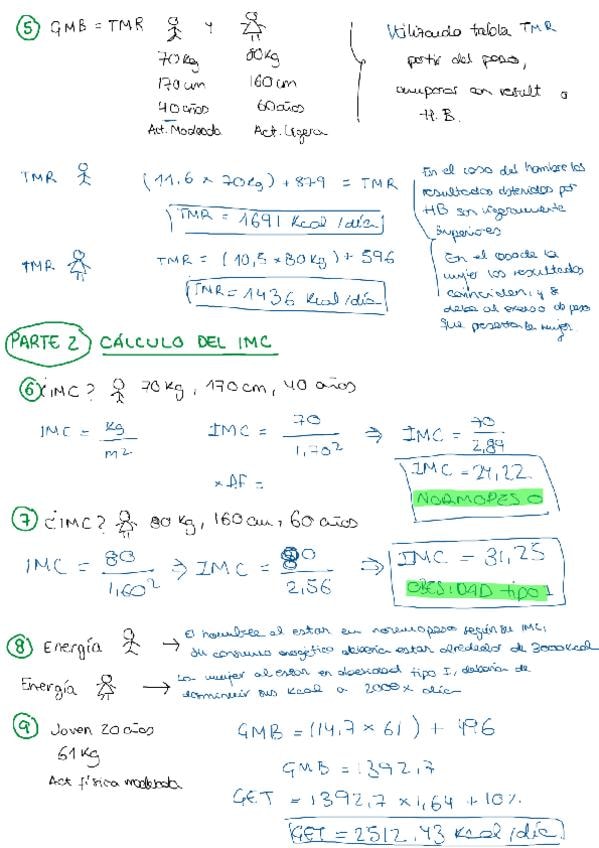 5 GMB = TMR y
70kg 80kg
170cm 160cm
40 años 60 años
Act. Moderada Act. Ligera
Utilizando tabla TMR
partir del peso,
comparar con result
H.B.
TMR (11,6 x 70kg) + 879 = TMR
TMR = 1691 Kcal/día
TMR TMR = (10,5 x 80kg) + 596
TMR = 1436 Kcal/día
En el caso del hombre los
resultados obtenidos por
HB son ligeramente
superiores
En el caso de la
mujer los resultados
coinciden, y
debe al exceso de peso
que presenta la mujer.
PARTE 2 CÁLCULO DEL IMC
6 ¿IMC? 70kg, 170cm, 40 años
IMC = kg / m2 IMC = 70 / 1,70² ⇒ IMC = 70 / 2,89
x AF =
IMC = 24,22
NORMOPESO
7 ¿IMC? 80kg, 160cm, 60 años
IMC = 80 / 1,60² ⇒ IMC = 80 / 2,56 ⇒ IMC = 31,25
OBESIDAD tipo 1
8 Energía → El hombre al estar en normopeso según su IMC,
su consumo energético debería estar alrededor de 3000Kcal
Energía → La mujer al estar en obesidad tipo I, debería de
disminuir sus Kcal a 2000 x día
9 Joven 20 años
61 Kg
Act física moderada
GMB = (14,7 x 61) + 496
GMB = 1392,7
GET = 1392,7 x 1,64 + 10%
GET = 2512,43 Kcal/día